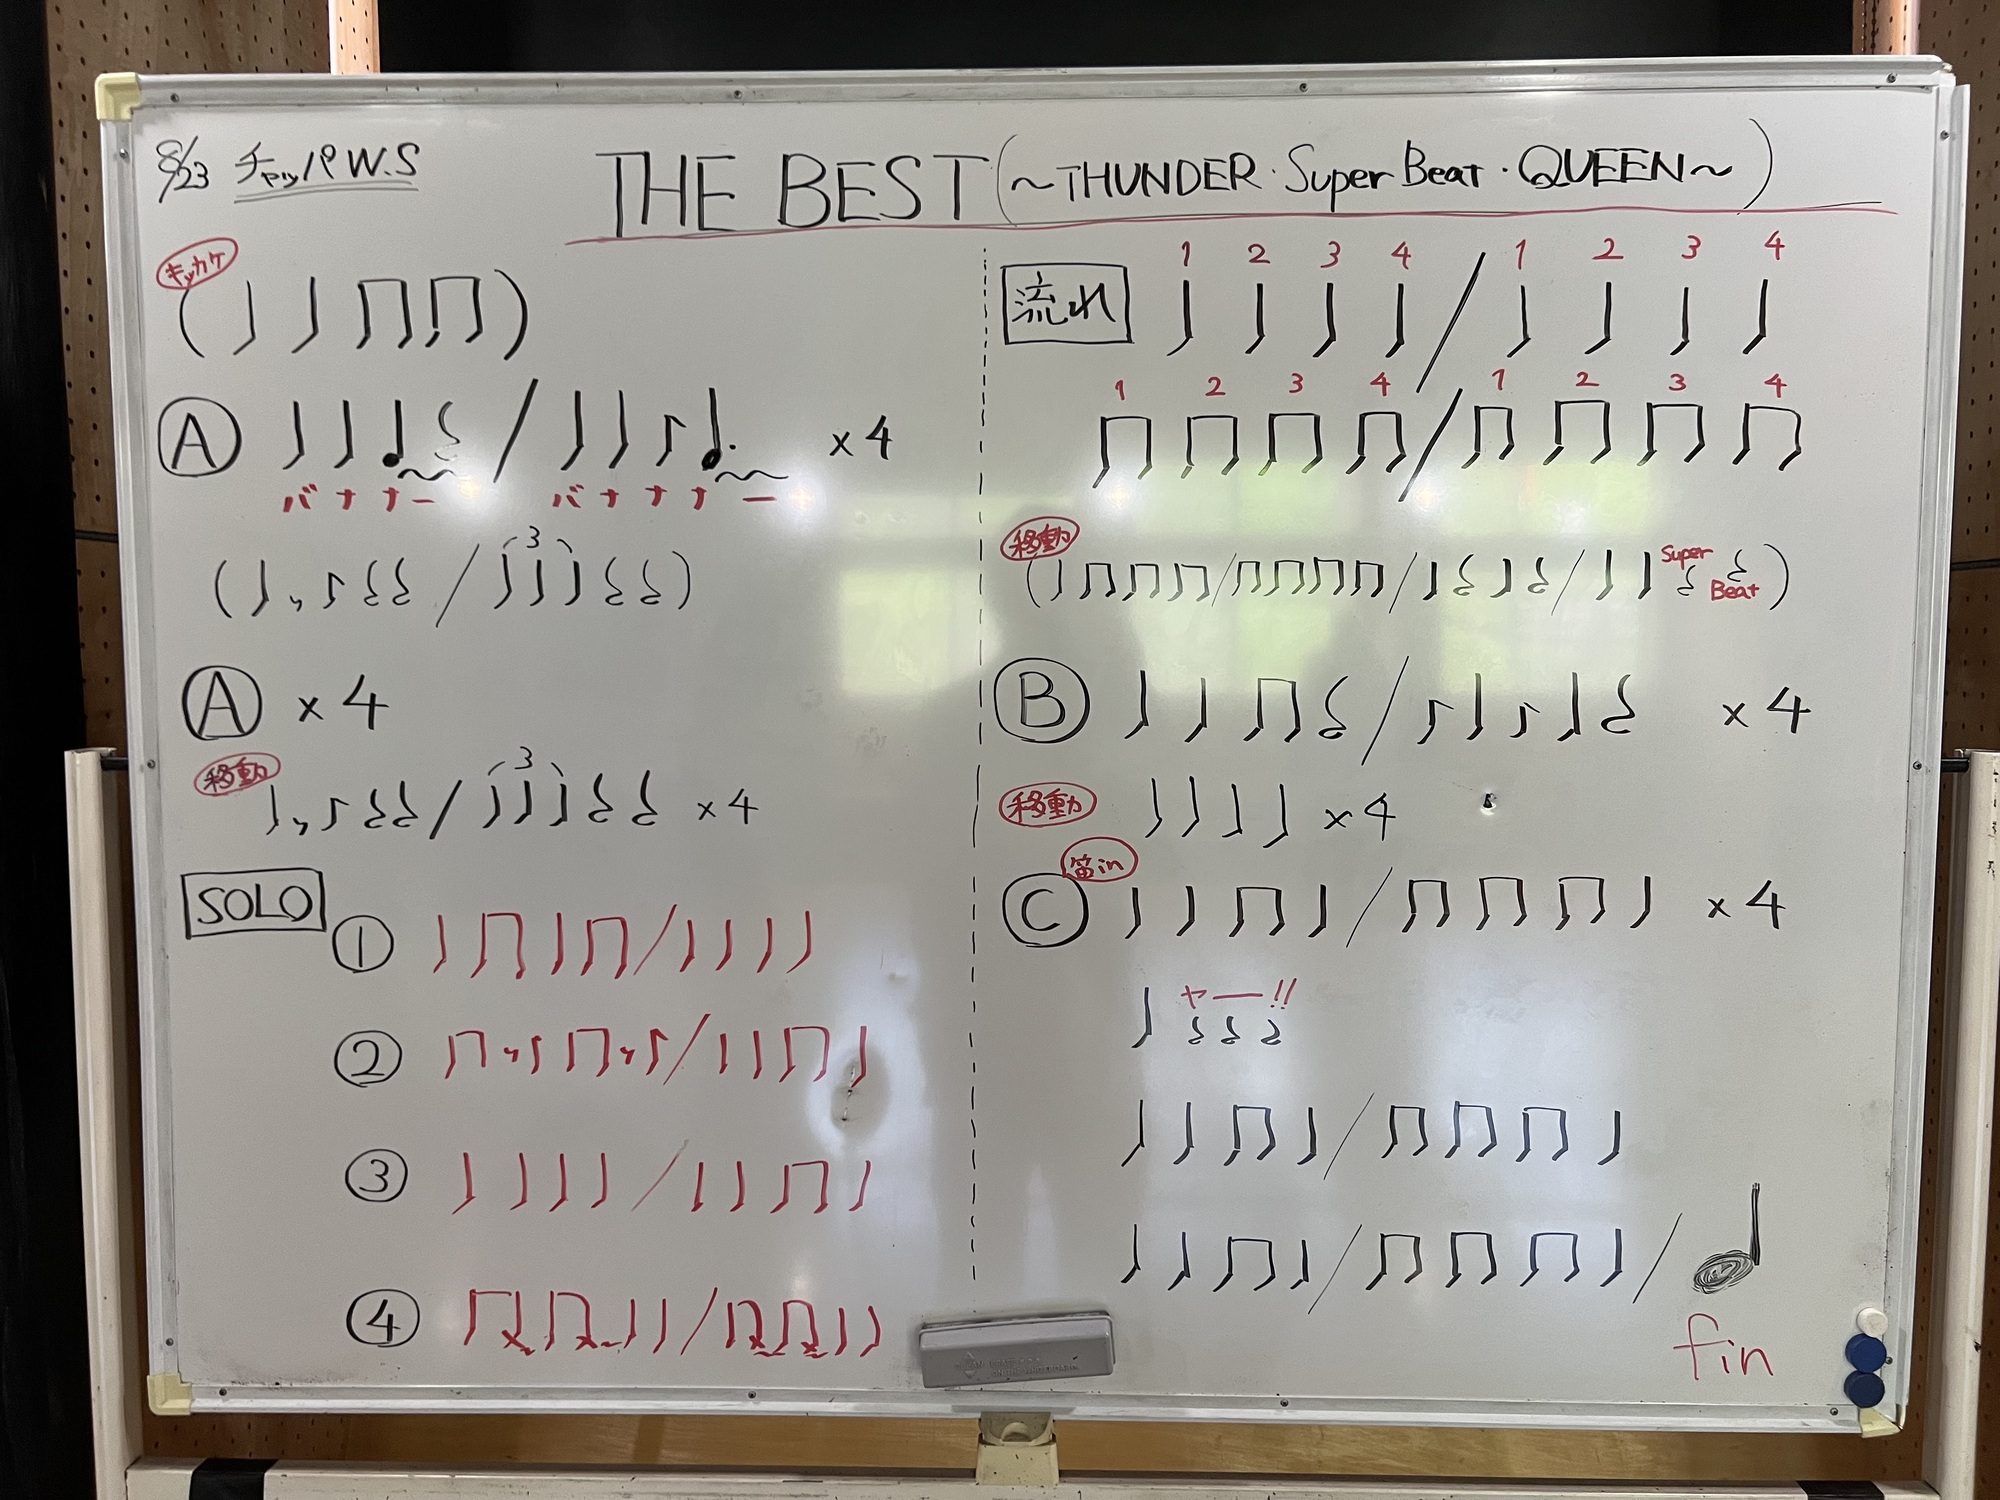 8/23 チャッパ W.S
THE BEST (~THUNDER・Super Beat・QUEEN~)
キッカケ
A ×4
バナナー バナナナー
3
A ×4
移動
3
×4
SOLO
①
②
③
④
流れ
1 2 3 4 / 1 2 3 4
1 2 3 4 / 1 2 3 4
移動
Super
Beat
B ×4
移動
×4
笛in
C ×4
ヤー!!
fin